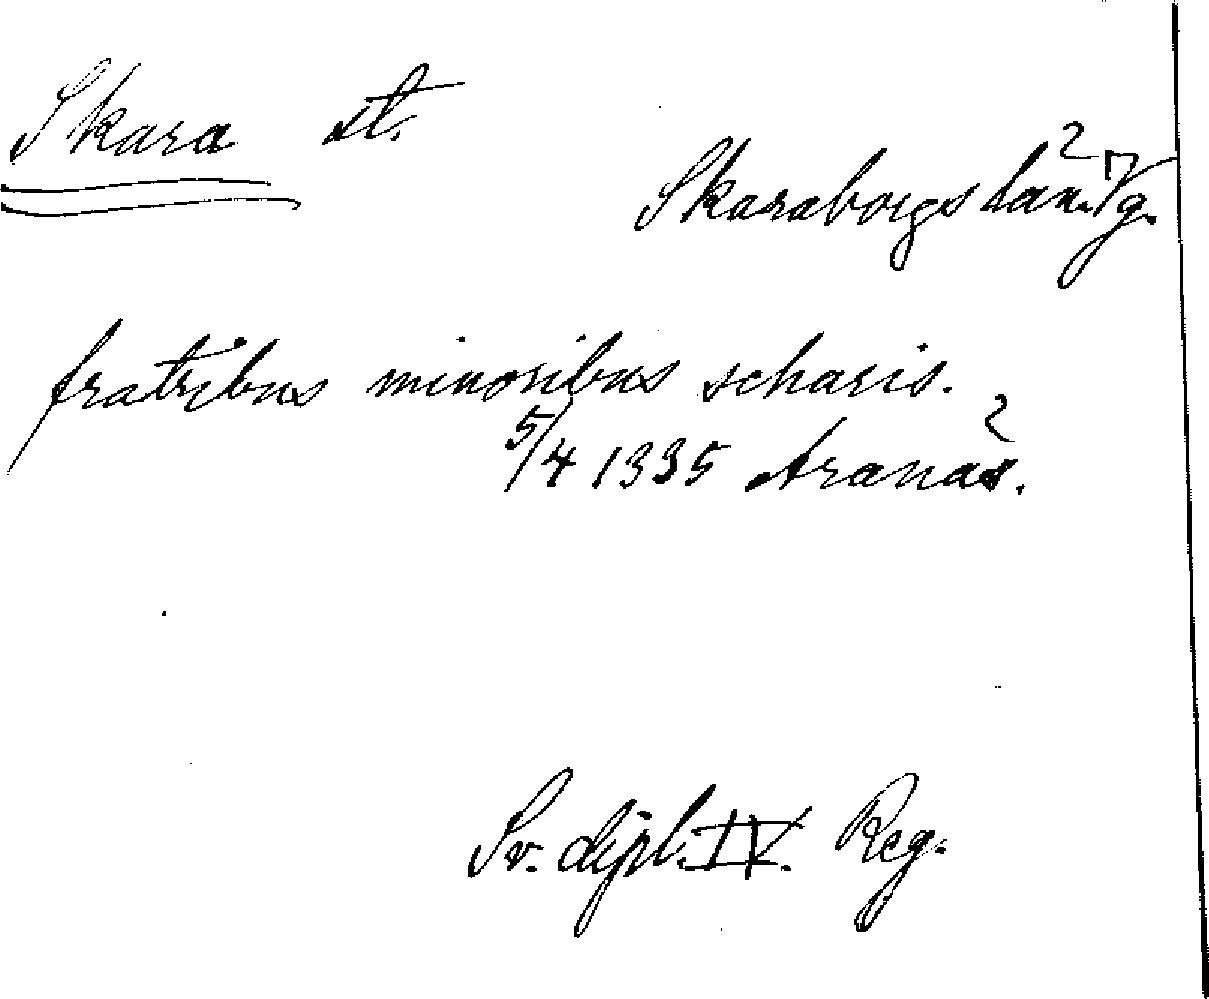 Skara st.
Skaraborgs län. Vg.
fratribus minoribus scharis.
5/4 1335 Aranäs.
Sv. dipl. IV. Reg.